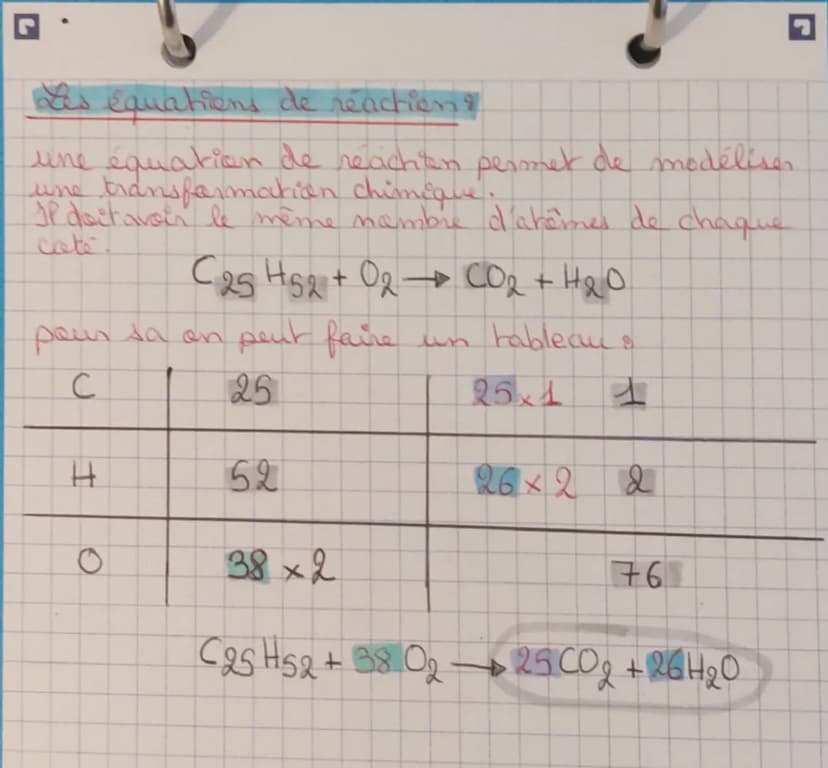 Les équations de réaction :
une équation de réaction permet de modéliser
une transformation chimique.
Il doit avoir le même nombre d'atômes de chaque
coté.
C25 H52 + O2 → CO2 + H2O
pour sa on peut faire un tableau :
C 25 25 x 1 1
H 52 26 x 2 2
O 38 x 2 76
C25 H52 + 38 O2 → 25 CO2 + 26 H2O